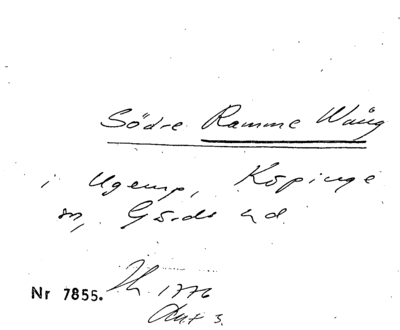 Södre Ramme Wång
i Ugerup, Köpinge
sn, Gärds hd.
Nr 7855. 1776